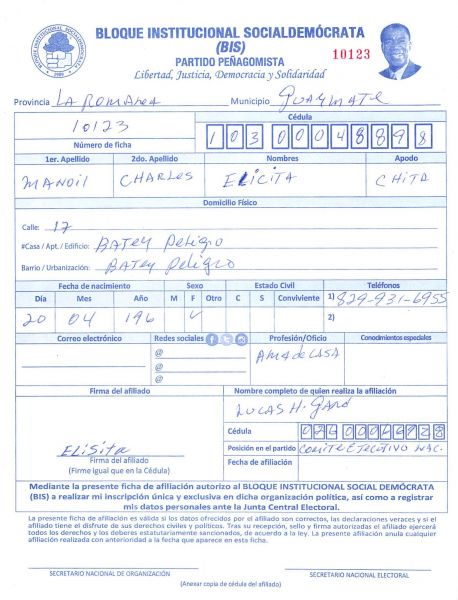 BLOQUE INSTITUCIONAL SOCIALDEMÓCRATA
(BIS)
PARTIDO PEÑAGOMISTA
Libertad, Justicia, Democracia y Solidaridad
10123
Provincia LA ROMANA Municipio GUAYMATE
10123
Número de ficha
Cédula
103 0004889 8
1er. Apellido 2do. Apellido Nombres Apodo
MANOIL CHARLES ELICITA CHITA
Domicilio Físico
Calle: 17
#Casa / Apt. / Edificio: BATEY PELIGRO
Barrio / Urbanización: BATEY PELIGRO
Fecha de nacimiento Sexo Estado Civil Teléfonos
Día Mes Año M F Otro C S Conviviente 1) 829-931-6955
20 04 196 2)
Correo electrónico Redes sociales Profesión/Oficio Conodmientos especiales
@ AMA de CASA
@
@
Firma del afiliado Nombre completo de quien realiza la afiliación
LUCAS H.
Cédula
ELISITA Posición en el partido COMITE EJECUTIVO NAC.
Firma del afiliado Fecha de afiliación
(Firme igual que en la Cédula)
Mediante la presente ficha de afiliación autorizo al BLOQUE INSTITUCIONAL SOCIAL DEMÓCRATA
(BIS) a realizar mi inscripción única y exclusiva en dicha organización política, así como a registrar
mis datos personales ante la Junta Central Electoral.
La presente ficha de afiliación es válida si los datos ofrecidos por el afiliado son correctos, las declaraciones veraces y si el
afiliado tiene el disfrute de sus derechos civiles y políticos. Tras su recepción, sello y firma autorizadas el afiliado ejercerá
todos los derechos y los deberes estatutariamente sancionados, de acuerdo a la ley. La presente afiliación anula cualquier
afiliación realizada con anterioridad a la fecha que aparece en esta ficha.
SECRETARIO NACIONAL DE ORGANIZACIÓN SECRETARIO NACIONAL ELECTORAL
(Anexar copia de cédula del afiliado)